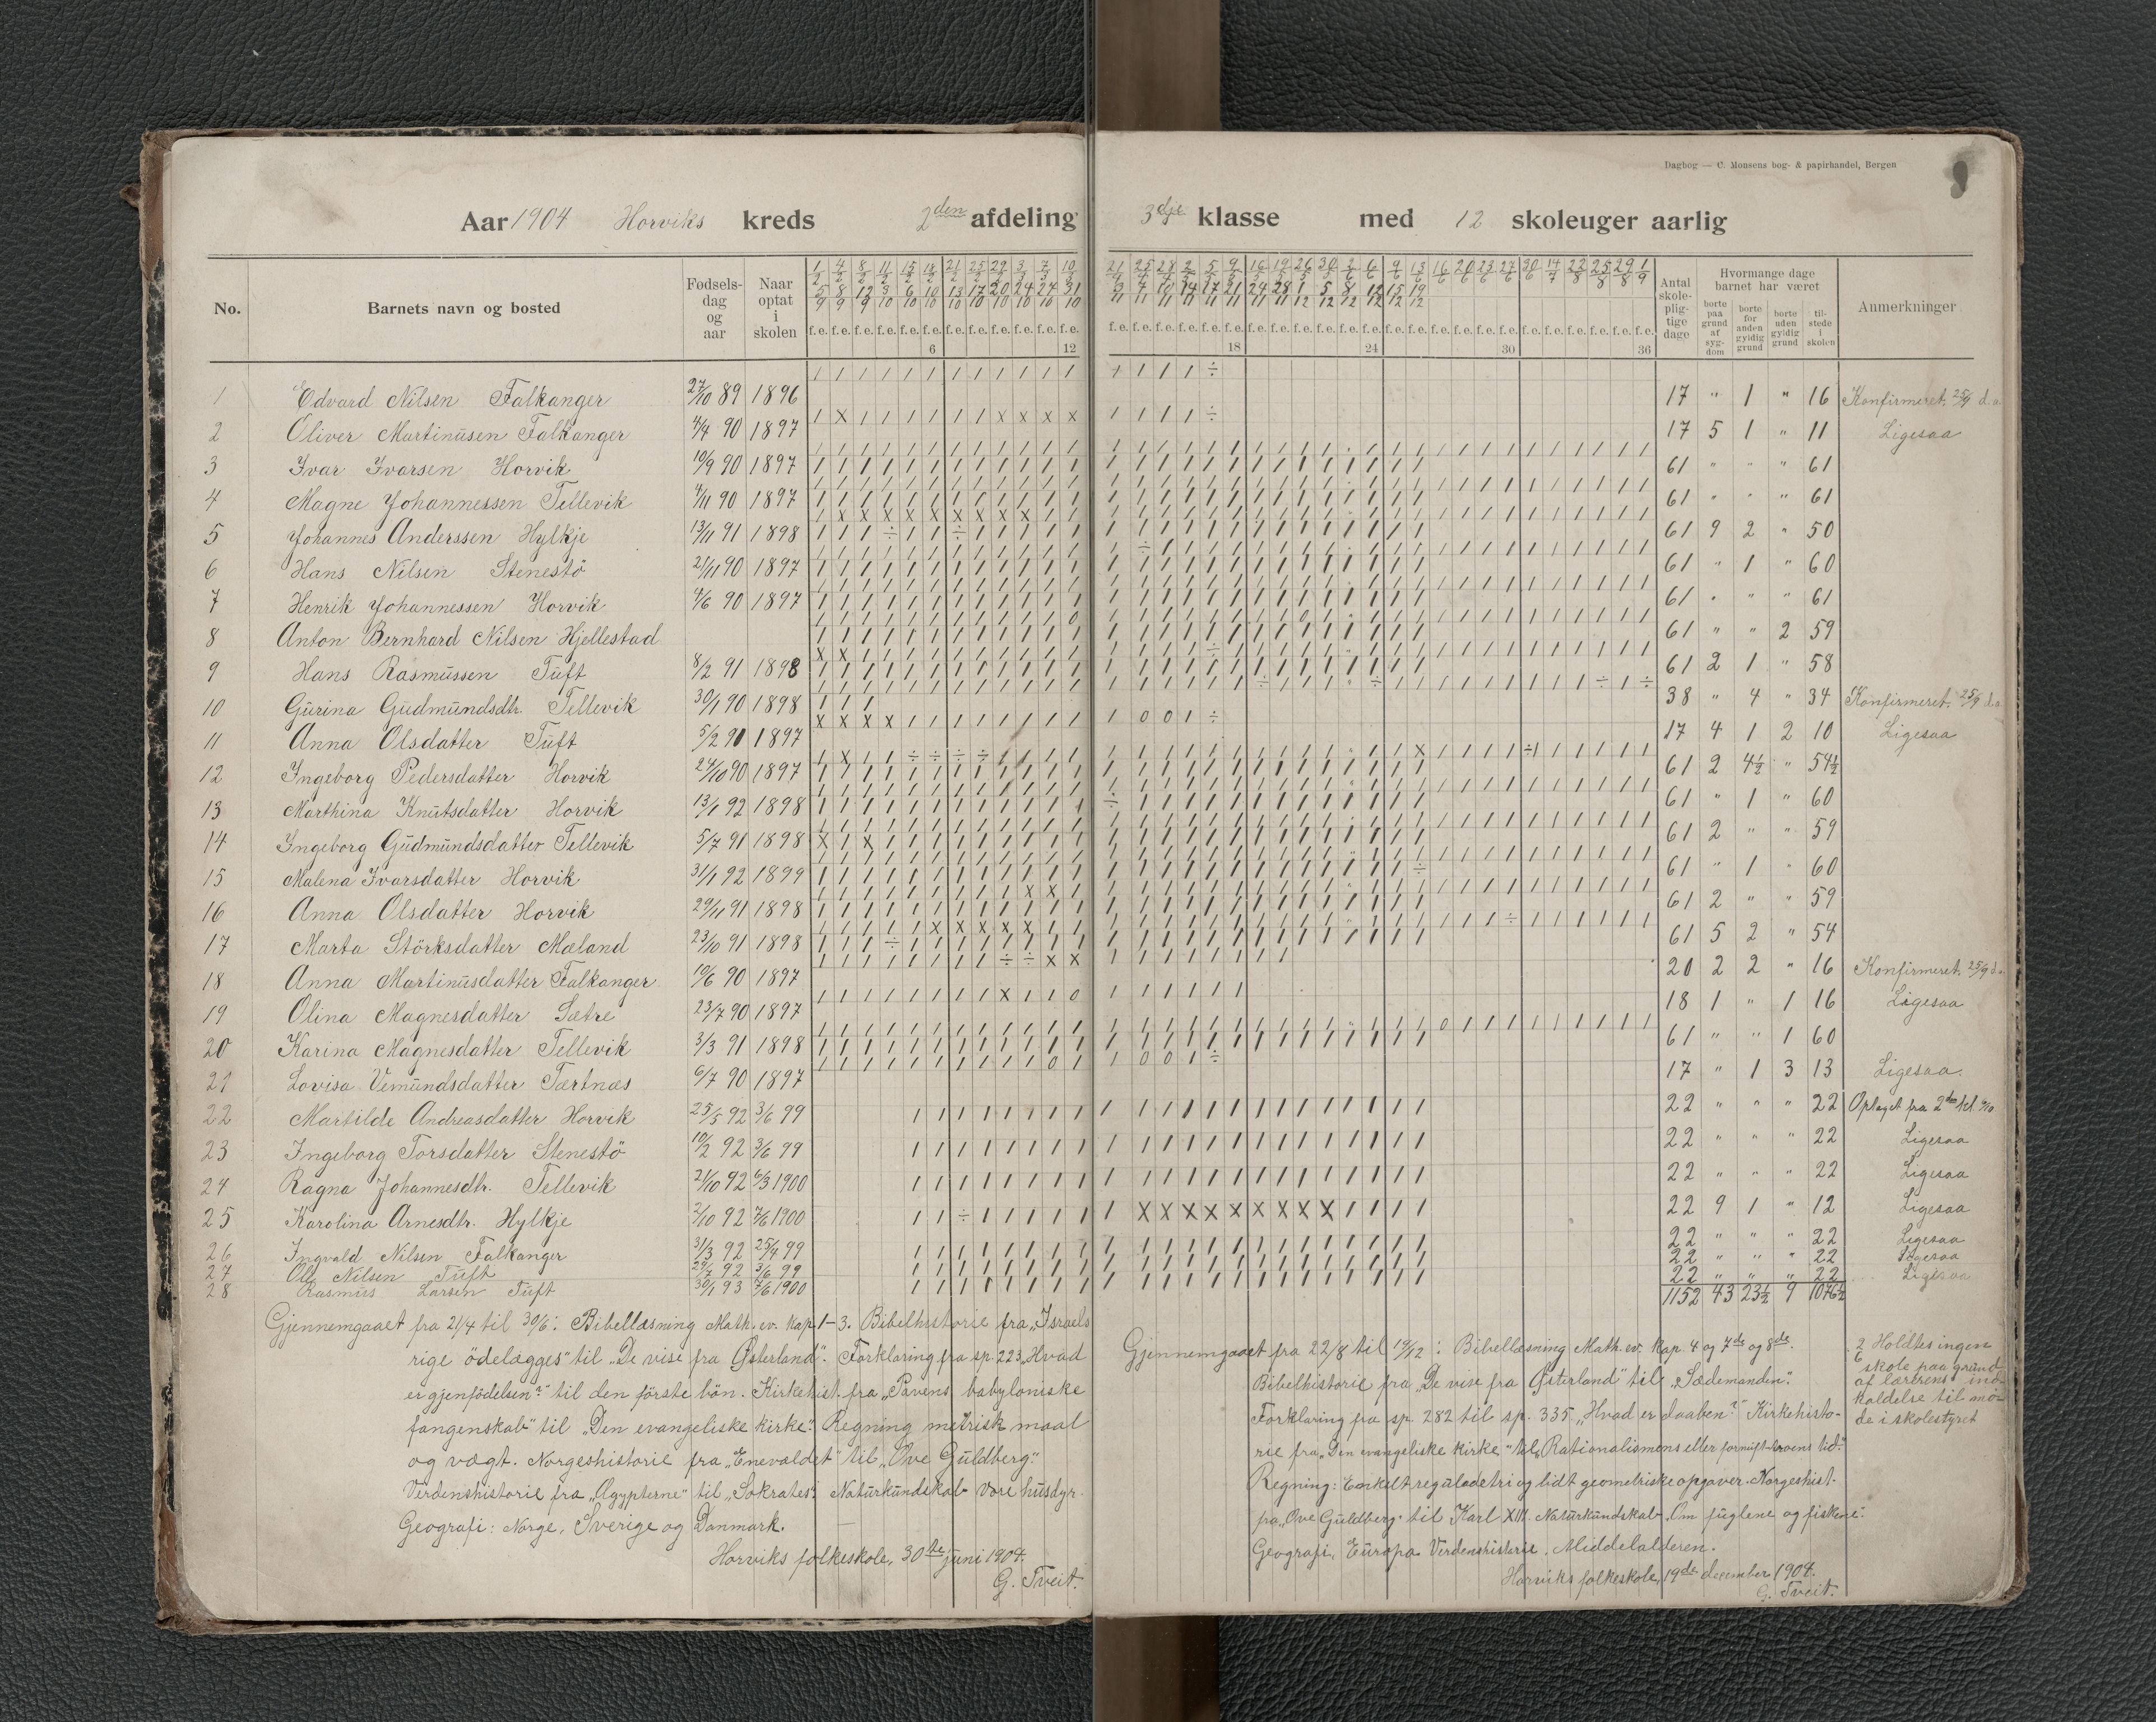 Dagbog — C. Monsens bog- & papirhandel, Bergen
Aar 1904 Horviks kreds 2den afdeling 3dje klasse med 12 skoleuger aarlig
No. Barnets navn og bosted Fødsels-dag og aar Naar optat i skolen Antal skole-plig-tige dage Hvormange dage barnet har været Anmerkninger
borte paa grund af syg-dom borte for anden gyldig grund borte uden gyldig grund til-stede i skolen
f.e. f.e. f.e. f.e. f.e. f.e. f.e. f.e. f.e. f.e. f.e. f.e. f.e. f.e. f.e. f.e. f.e. f.e. f.e. f.e. f.e. f.e. f.e. f.e. f.e. f.e. f.e. f.e. f.e. f.e. f.e. f.e. f.e. f.e. f.e. f.e.
6 12 18 24 30 36
1 Edvard Nilsen Falkanger 27/10 89 1896 17 " 1 " 16 Konfirmeret 25/9 d.a.
2 Oliver Martinusen Falkanger 4/4 90 1897 17 5 1 " 11 Ligesaa
3 Ivar Ivarsen Horvik 10/9 90 1897 61 " " " 61
4 Magne Johannessen Tellevik 4/11 90 1897 61 " " " 61
5 Johannes Anderssen Hylkje 13/11 91 1898 61 9 2 " 50
6 Hans Nilsen Stenestö 21/11 90 1897 61 " 1 " 60
7 Henrik Johannessen Horvik 4/6 90 1897 61 " " " 61
8 Anton Bernhard Nilsen Hjellestad 61 " " 2 59
9 Hans Rasmussen Tuft 8/2 91 1898 61 2 1 " 58
10 Gurina Gudmundsdtr. Tellevik 30/1 90 1898 38 " 4 " 34 Konfirmeret 25/9 d.a.
11 Anna Olsdatter Tuft 5/2 90 1897 17 4 1 2 10 Ligesaa
12 Ingeborg Pedersdatter Horvik 24/10 90 1897 61 2 4½ " 54½
13 Marthina Knutsdatter Horvik 13/1 92 1898 61 " 1 " 60
14 Ingeborg Gudmundsdatter Tellevik 5/7 91 1898 61 2 " " 59
15 Malena Ivarsdatter Horvik 31/1 92 1899 61 " 1 " 60
16 Anna Olsdatter Horvik 29/11 91 1898 61 2 " " 59
17 Marta Störksdatter Mæland 23/10 91 1898 61 5 2 " 54
18 Anna Martinusdatter Falkanger 10/6 90 1897 20 2 2 " 16 Konfirmeret 25/9 d.a.
19 Olina Magnesdatter Sætre 23/7 90 1897 18 1 " 1 16 Ligesaa
20 Karina Magnesdatter Tellevik 3/3 91 1898 61 " " 1 60
21 Lovisa Vemundsdatter Tærtnæs 6/7 90 1897 17 " 1 3 13 Ligesaa.
22 Martilde Andreasdatter Horvik 25/5 92 3/6 99 22 " " " 22 Optaget fra 2den kl.
23 Ingeborg Torsdatter Stenestö 10/2 92 3/6 99 22 " " " 22 Ligesaa
24 Ragna Johannesdtr. Tellevik 21/10 92 6/3 1900 22 " " " 22 Ligesaa
25 Karolina Arnesdtr. Hylkje 2/10 92 7/6 1900 22 9 1 " 12 Ligesaa
26 Ingvald Nilsen Falkanger 31/3 92 25/4 99 22 " " " 22 Ligesaa
27 Ole Nilsen Tuft 29/7 92 3/6 99 22 " " " 22 Ligesaa
28 Rasmus Larsen Tuft 30/1 93 7/6 1900 22 " " " 22 Ligesaa
1152 43 23½ 9 1076½
Gjennemgaaet fra 21/4 til 30/6: Bibellæsning Math. ev. kap. 1-3. Bibelhistorie fra „Israels
rige ödelægges" til „De vise fra Østerland". Forklaring fra sp. 223 „Hvad
er gjenfödelsen?" til den förste bön. Kirkehist. fra „Pavens babyloniske
fangenskab" til „Den evangeliske kirke". Regning metrisk maal
og vægt. Norgeshistorie fra „Enevældet" til „Ove Guldberg".
Verdenshistorie fra „Ægypterne" til „Sokrates". Naturkundskab Vore husdyr.
Geografi: Norge, Sverige og Danmark.
Horviks folkeskole, 30te juni 1904.
G. Tveit.
Gjennemgaaet fra 22/8 til 19/12: Bibellæsning Math. ev. kap. 4 og 7de og 8de.
Bibelhistorie fra „De vise fra Østerland" til „Sædemanden".
Forklaring fra sp. 282 til sp. 335 „Hvad er daaben?" Kirkehisto-
rie fra „Den evangeliske kirke" til „Rationalismens eller fornufttroens tid."
Regning: Enkelt reguladetri og lidt geometriske opgaver. Norgeshist.
fra „Ove Guldberg" til Karl XIII. Naturkundskab „Om fuglene og fiskene".
Geografi, Europa. Verdenshistorie, Middelalderen.
Horviks folkeskole, 19de december 1904.
G. Tveit.
2/6 Holdtes ingen
skole paa grund
af lærerens ind-
kaldelse til mö-
de i skolestyret